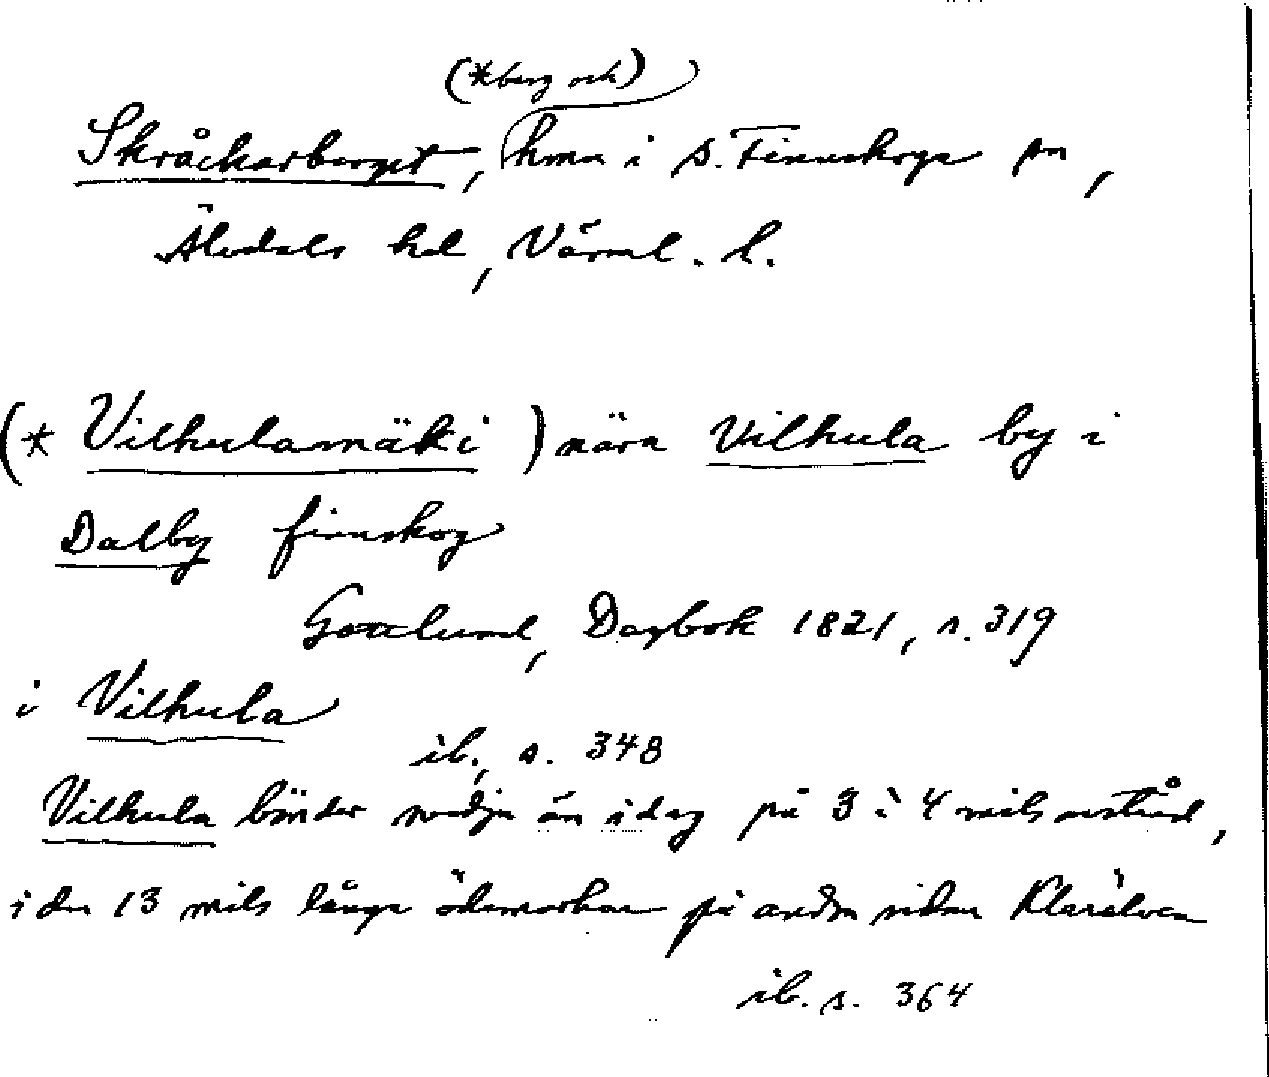 (*berg och)
Skråckarberget, hmn i S. Finnskoga sn,
Älvdals hd, Värml. l.
(* Vilhulamäki) nära Vilhula by i
Dalby finnskog
Gottlund, Dagbok 1821, s. 319
i Vilhula
ib., s. 348
Vilhula bönder svedja än idag på 3 à 4 mils avstånd,
i den 13 mils långa ödemarken på andra sidan Klarälven
ib. s. 364